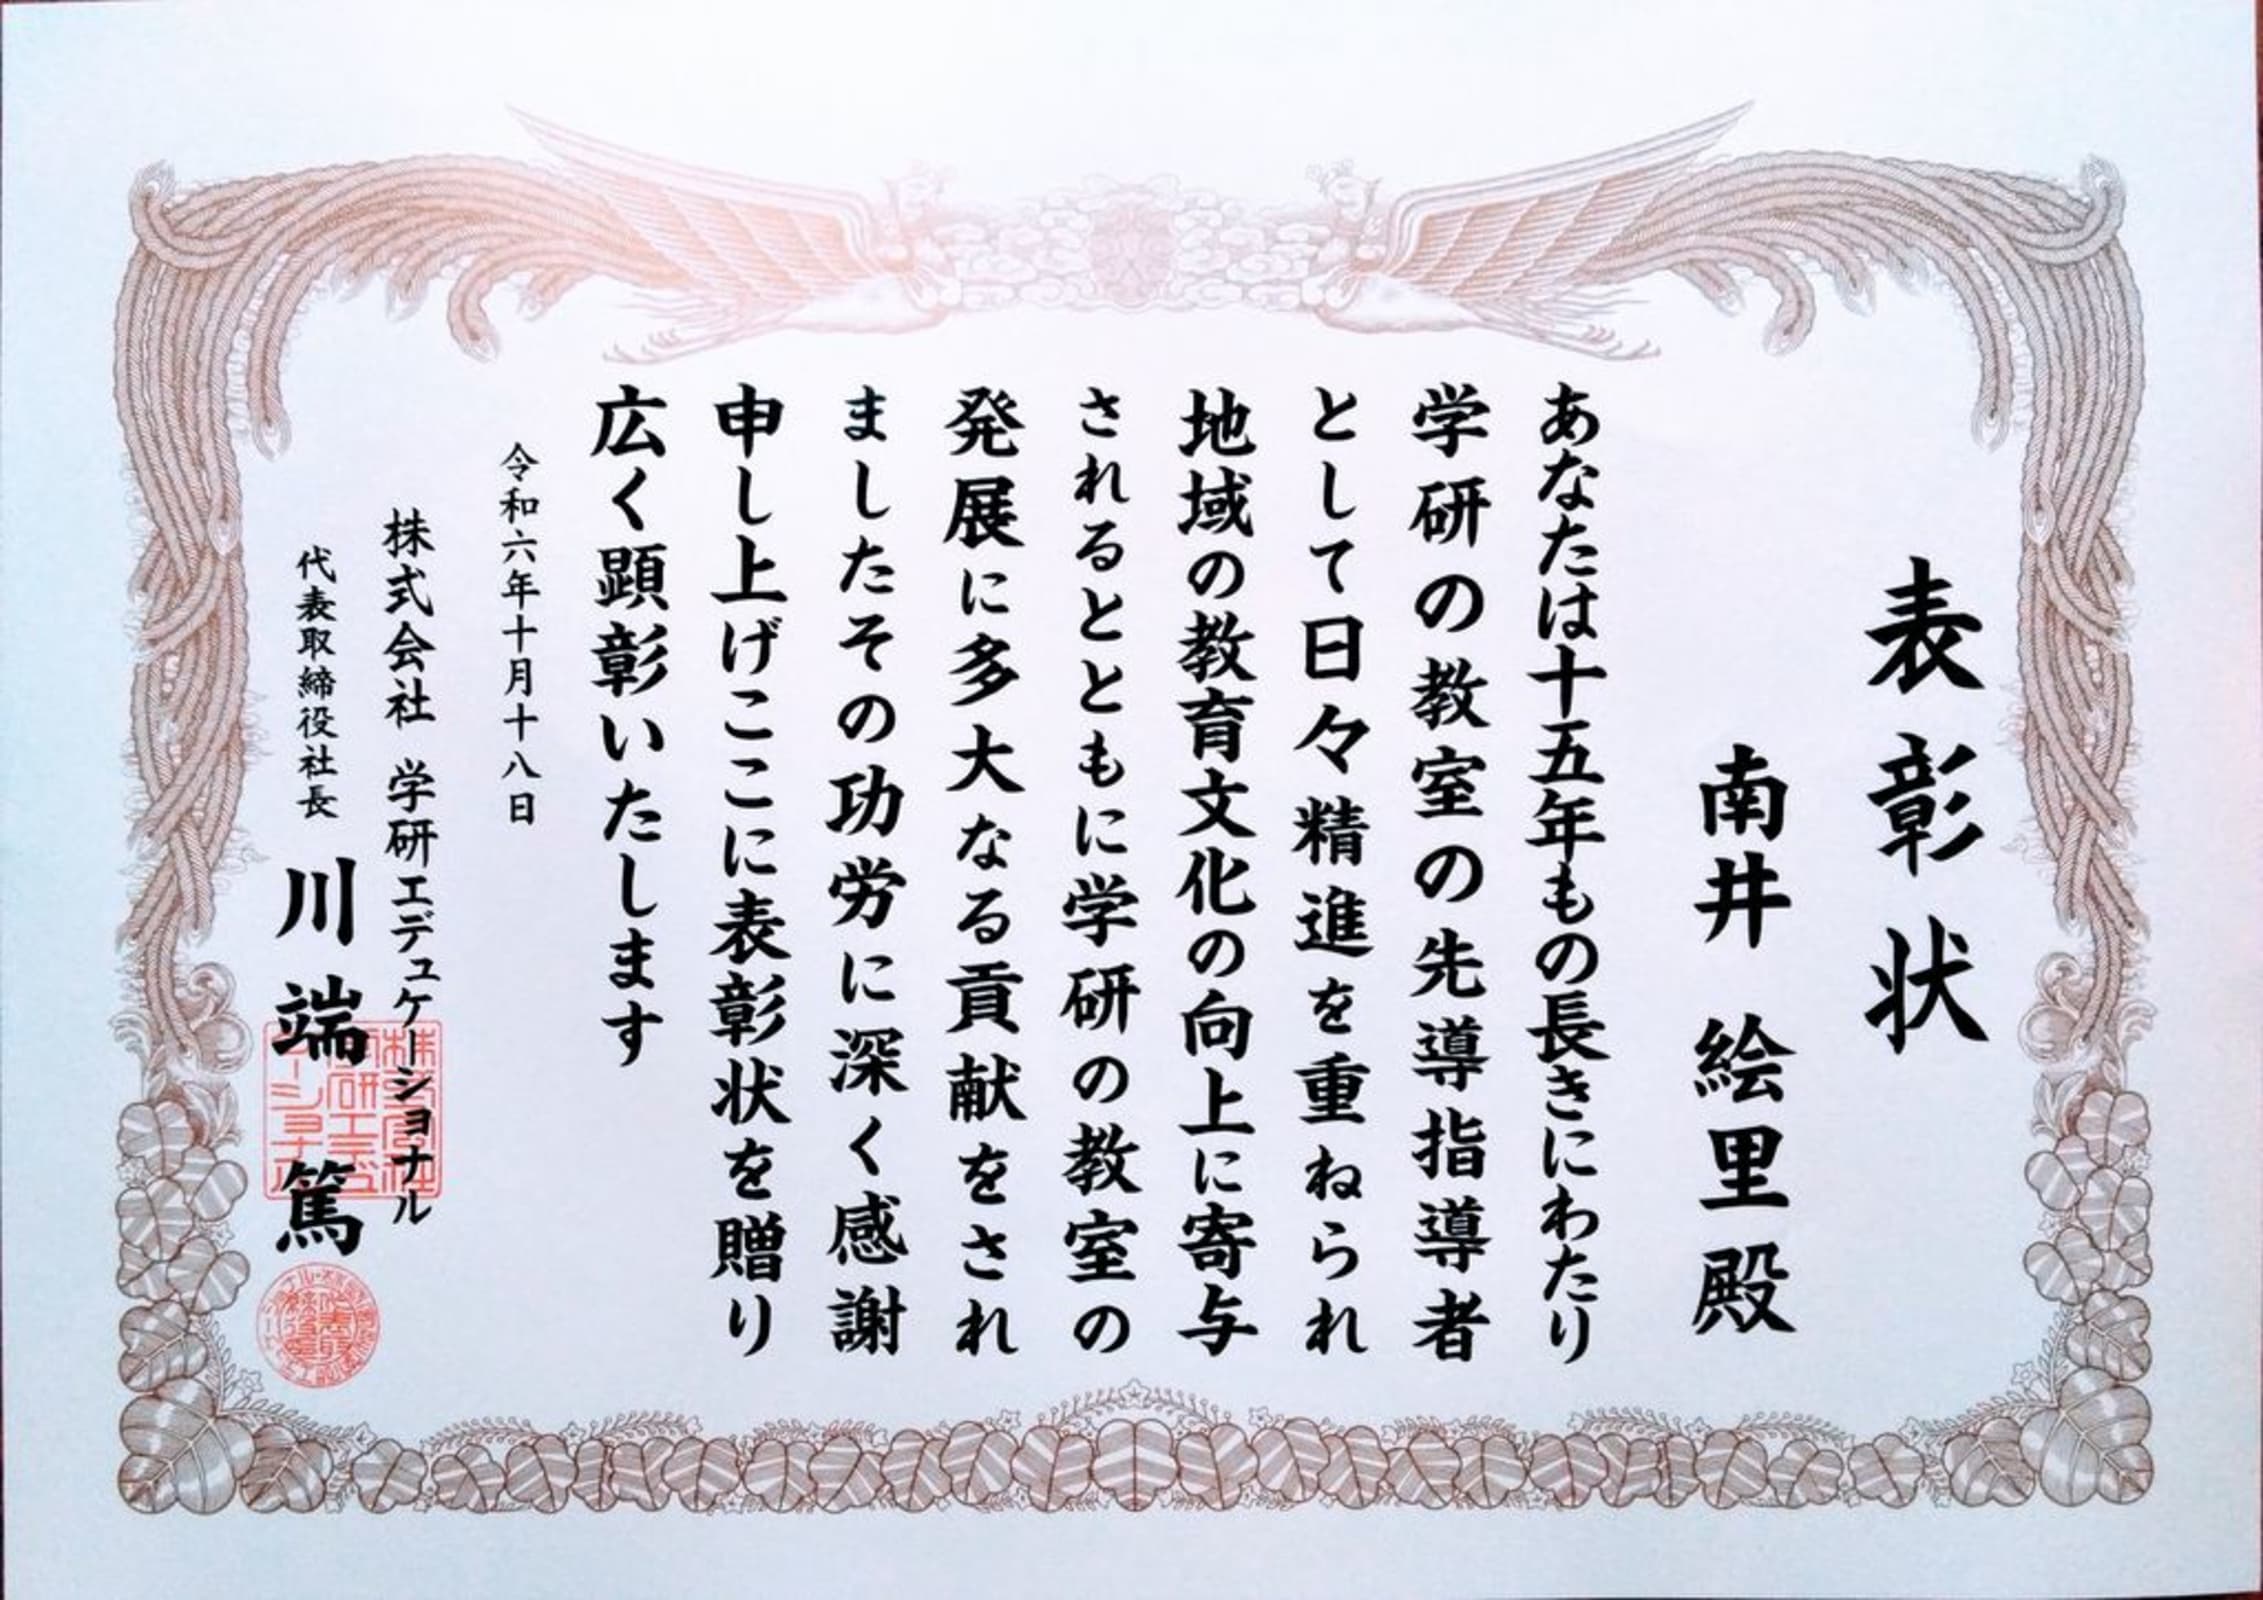 表彰状
南井 絵里 殿
あなたは十五年もの長きにわたり
学研の教室の先導指導者
として日々精進を重ねられ
地域の教育文化の向上に寄与
されるとともに学研の教室の
発展に多大なる貢献をされ
ましたその功労に深く感謝
申し上げここに表彰状を贈り
広く顕彰いたします
令和六年十月十八日
株式会社 学研エデュケーショナル
代表取締役社長 川端 篤